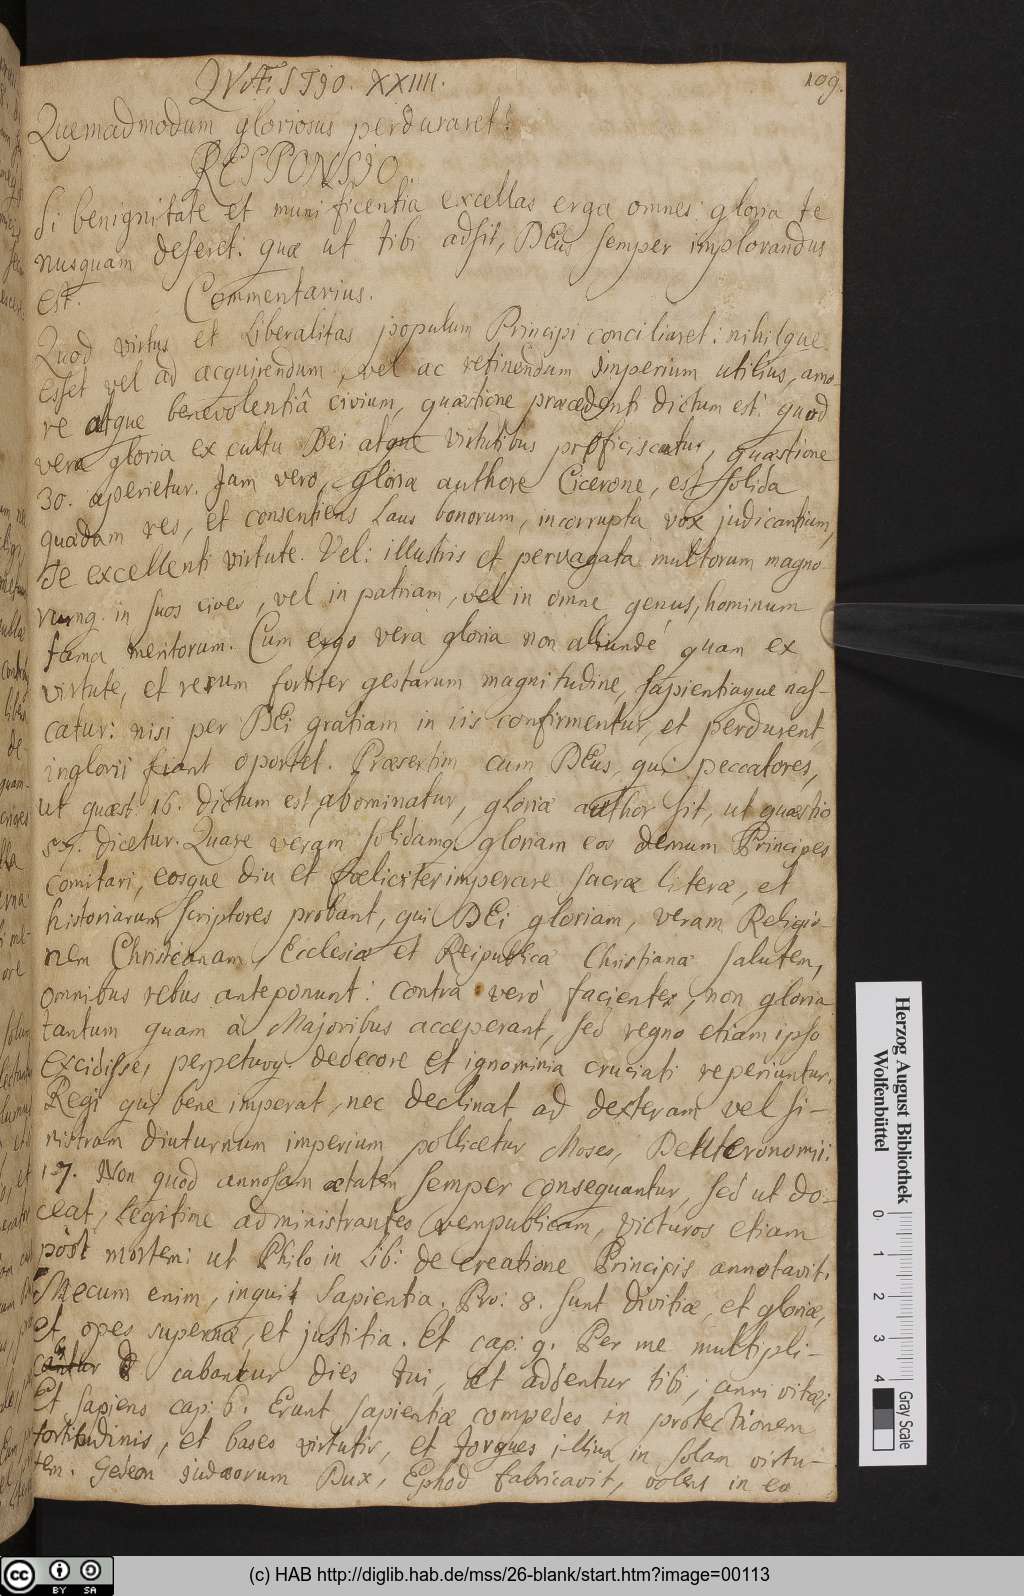 109.
QVÆSTIO. XXIIII.
Quemadmodum gloriosus perduraret?
RESPONSIO.
Si benignitate et munificentia excellas erga omnes: gloria te
nusquam deseret: quæ ut tibi adsit, DEus semper implorandus
est. Commentarius.
Quod virtus et Liberalitas populum Principi conciliaret: nihilque
esset vel ad acquirendum, vel ac retinendum Imperium utilius, amo-
re atque benevolentiâ civium, quæstione præcedenti dictum est: quod
vera gloria ex cultu Dei atque virtutibus proficiscatur, quæstione
30. aperietur. Jam vero, gloria authore Cicerone, est solida
quædam res, et consentiens Laus bonorum, incorrupta vox judicantium,
de excellenti virtute. Vel: illustris et pervagata multorum magno-
rumq. in suos cives, vel in patriam, vel in omne genus, hominum
fama meritorum. Cum ergo vera gloria non aliunde quam ex
virtute, et rerum fortiter gestarum magnitudine, sapientiaque nas-
catur: nisi per DEi gratiam in iis confirmentur, et perdurent,
inglorii fiant oportet. Præsertim cum DEus, qui peccatores,
ut quæst. 16. dictum est, abominatur, gloriæ author sit, ut quæstio
57. dicetur. Quare veram solidamq. gloriam eos demum Principes
comitari, eosque diu et fœliciter imperare sacræ literæ, et
historiarum scriptores probant, qui DEi gloriam, veram Religio-
nem Christianam, Ecclesiæ et Reipublicæ Christianæ salutem,
omnibus rebus anteponunt: contra verò facientes, non gloria
tantum quam à Majoribus acceperant, sed regno etiam ipso
excidisse, perpetuoq. dedecore et ignominia cruciati reperiuntur.
Regi qui bene imperat, nec declinat ad dexteram vel si-
nistram diuturnum imperium pollicetur Moses, Deuteronomii:
17. Non quod annosam ætatem semper consequantur, sed ut do-
ceat, Legitime administrantes rempublicam, victuros etiam
post mortem: ut Philo in Lib: de creatione Principis annotavit.
Mecum enim, inquit Sapientia. Pro: 8. sunt divitiæ, et gloriæ,
et opes supernæ, et justitia. Et cap: 9. Per me multipli-
cabantur dies tui, et addentur tibi, anni vitæ;
Et Sapiens cap: 6. Erunt sapientiæ compedes in protectionem
fortitudinis, et bases virtutis, et torques illius in solam virtu-
tem. Gedeon Judæorum Dux, Ephod fabricavit, volens in eo
Herzog August Bibliothek
Wolfenbüttel
0 1 2 3 4
Gray Scale
CC BY SA
(c) HAB http://diglib.hab.de/mss/26-blank/start.htm?image=00113